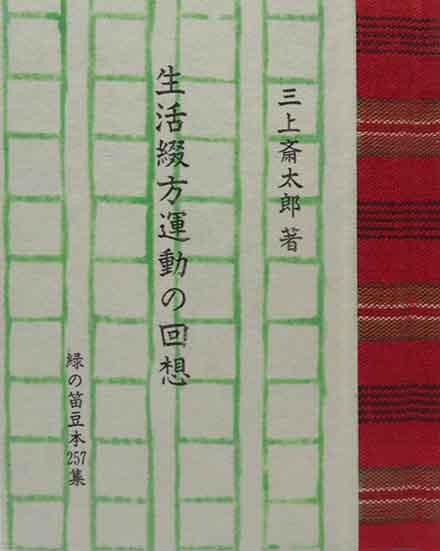 三上斎太郎著
生活綴方運動の回想
緑の笛豆本257集